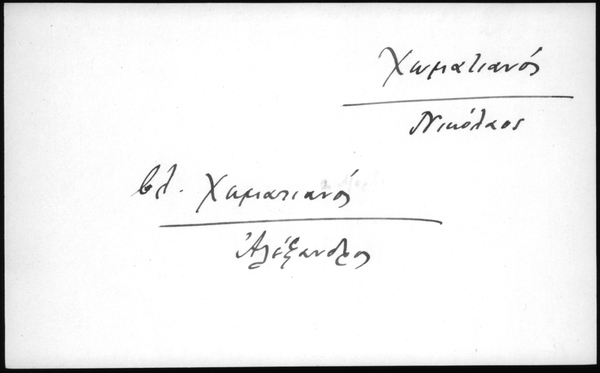 Χωματιανός
Νικόλαος
βλ. Χωματιανός
Ἀλέξανδρος